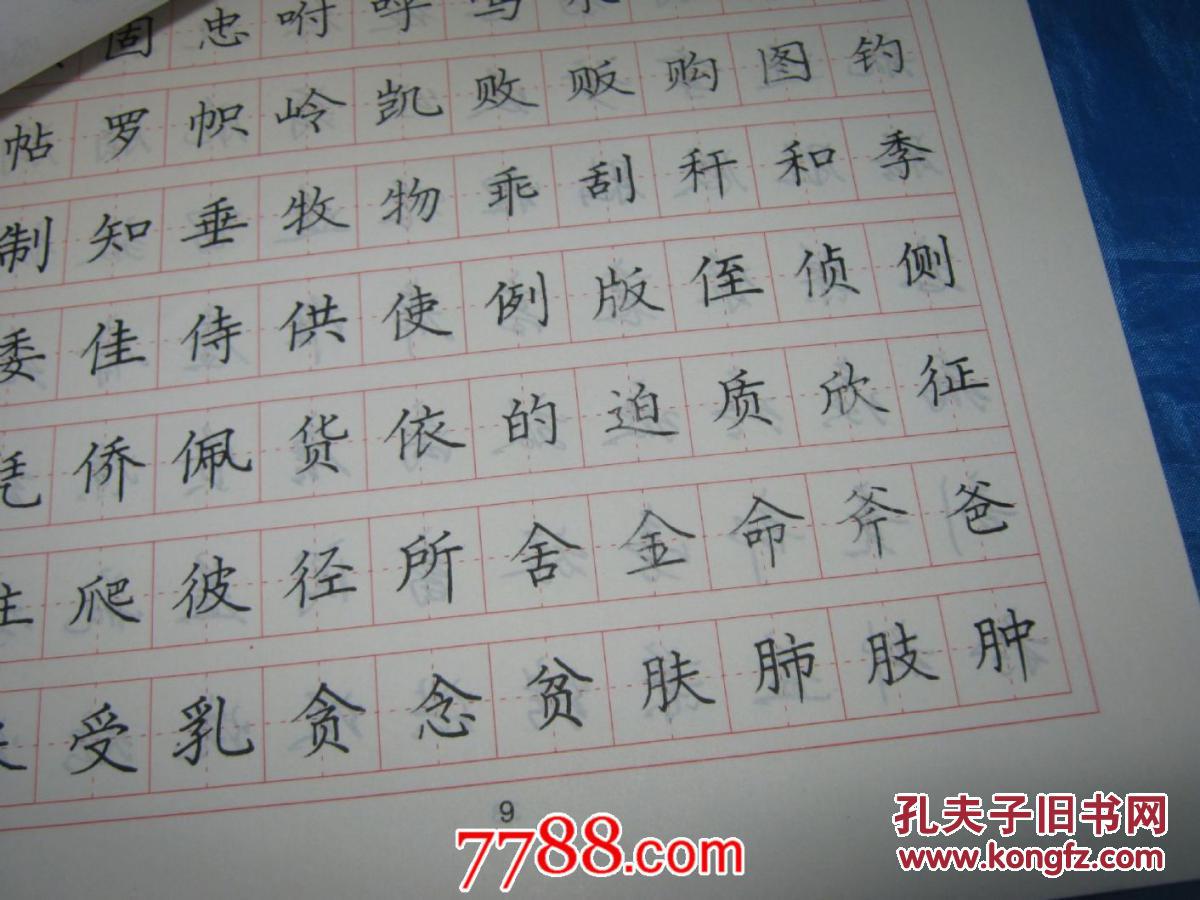 固忠咐呼鸣
帖罗帜岭凯败贩购图钓
制知垂牧物乖刮秆和季
委佳侍供使例版侄侦侧
凭侨佩货依的迫质欣征
往爬彼径所舍金命斧爸
受乳贪念贫肤肺肢肿
9
7788.com
孔夫子旧书网
www.kongfz.com